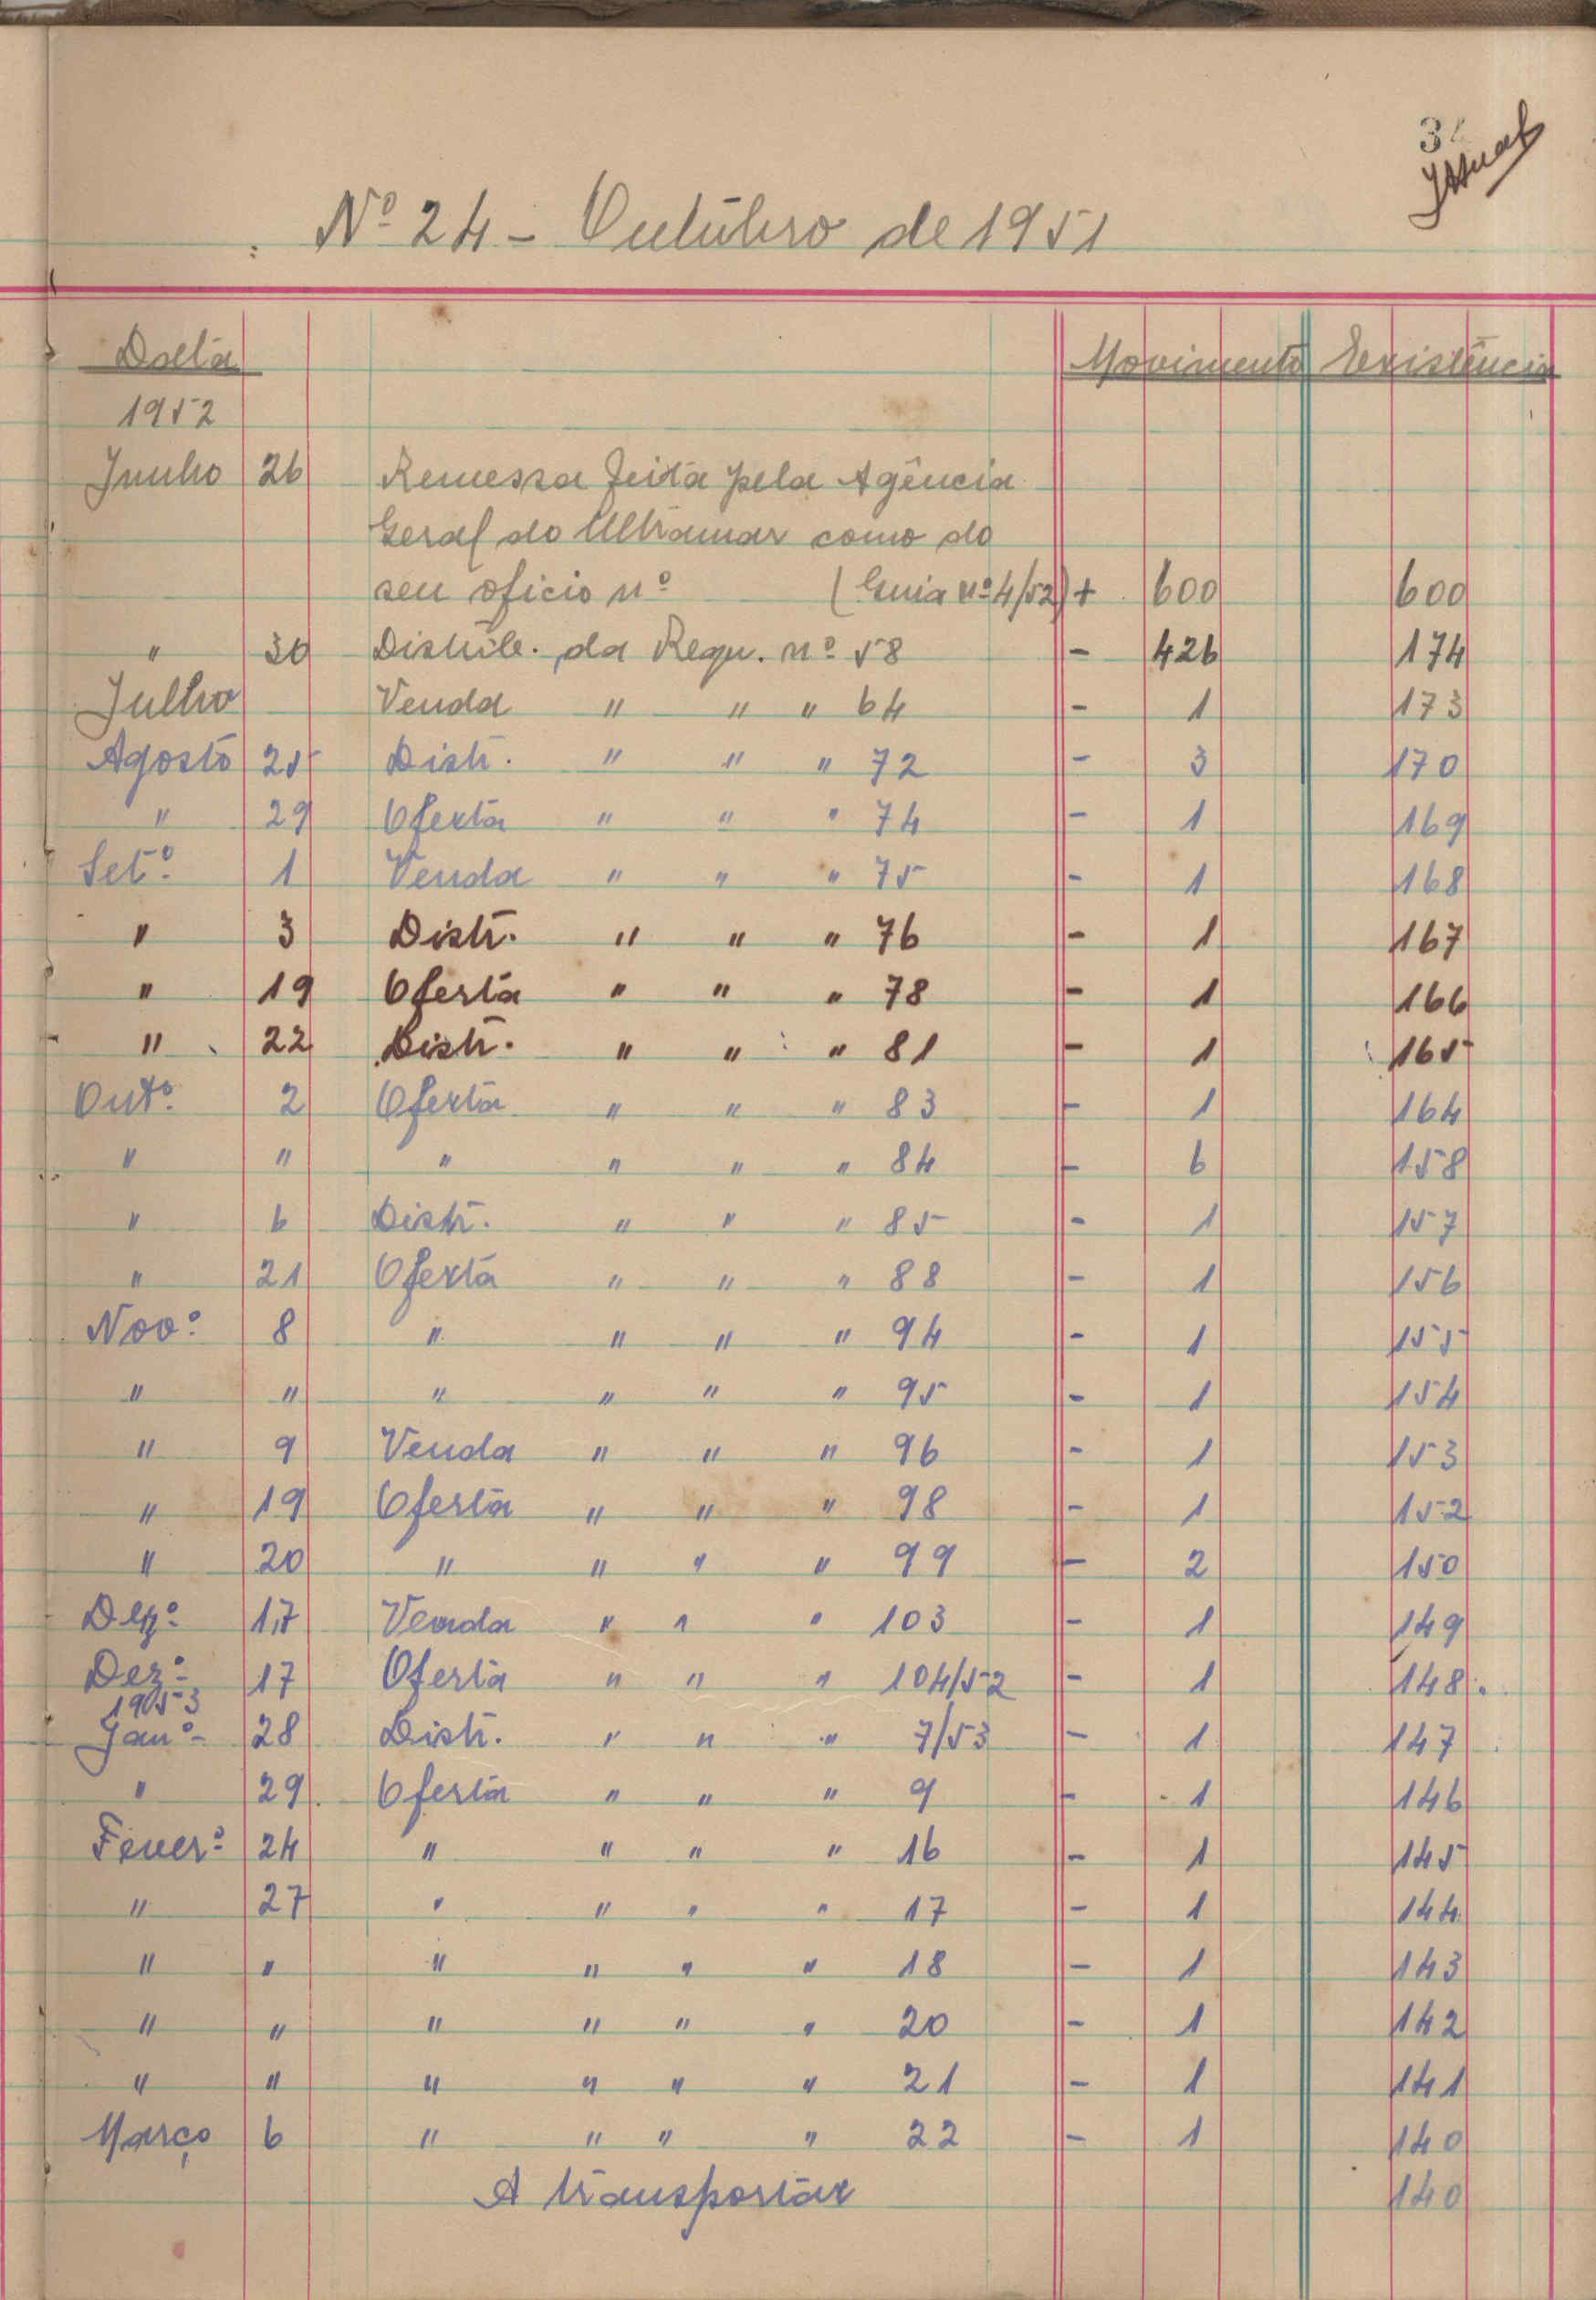 3
Nº 24 - Outúbro de 1951
Dacta Movimento Existência
1952
Junho 26 Remessa feita pela Agência
Geral do Ultramar como do
seu oficio nº (Guia nº 4/52) + 600 600
" 30 Distrib. da Requ. nº 58 - 426 174
Julho Venda " " " 64 - 1 173
Agosto 25 Distr. " " " 72 - 3 170
" 29 Oferta " " " 74 - 1 169
Setº 1 Venda " " " 75 - 1 168
" 3 Distr. " " " 76 - 1 167
" 19 Oferta " " " 78 - 1 166
" 22 Distr. " " " 81 - 1 165
Outº 2 Oferta " " " 83 - 1 164
" " " " " " 84 - 6 158
" 6 Distr. " " " 85 - 1 157
" 21 Oferta " " " 88 - 1 156
Novº 8 " " " " 94 - 1 155
" " " " " " 95 - 1 154
" 9 Venda " " " 96 - 1 153
" 19 Oferta " " " 98 - 1 152
" 20 " " " " 99 - 2 150
Dezº 17 Venda " " " 103 - 1 149
Dezº 17 Oferta " " " 104/52 - 1 148.
1953
Janº 28 Distr. " " " 7/53 - 1 147
" 29 Oferta " " " 9 - 1 146
Feverº 24 " " " " 16 - 1 145
" 27 " " " " 17 - 1 144
" " " " " " 18 - 1 143
" " " " " " 20 - 1 142
" " " " " " 21 - 1 141
Março 6 " " " " 22 - 1 140
A transportar 140